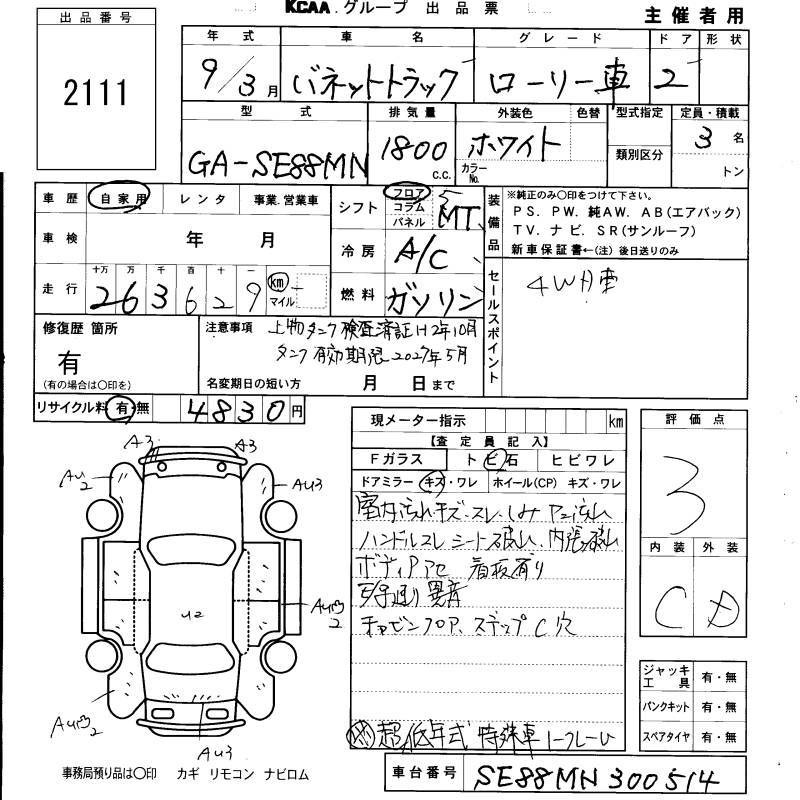 KCAA.グループ 出品票
主催者用
出品番号
2111
年式 車名 グレード ドア 形状
9/3月 バネットトラック ローリー車 2
型式 排気量 外装色 色替 型式指定 定員・積載
GA-SE88MN 1800 c.c. ホワイト カラーNo. 類別区分 3名 トン
車歴 自家用 レンタ 事業.営業車
シフト フロア コラム パネル 5 MT
装備品 ※純正のみ〇印をつけて下さい。
PS. PW. 純AW. AB(エアバック)
TV. ナビ. SR(サンルーフ)
新車保証書←(注)後日送りのみ
車検 年 月
冷房 A/C
走行 十万 万 千 百 十 一 km マイル
263629
燃料 ガソリン
セールスポイント
4WD車
修復歴 箇所
有
(有の場合は〇印を)
注意事項 上物タンク検査済証H2年10月
タンク有効期限2027年5月
名変期日の短い方 月 日まで
リサイクル料 有・無 4830円
現メーター指示 km
【査定員記入】
Fガラス トビ石 ヒビワレ
ドアミラー キズ・ワレ ホイール(CP) キズ・ワレ
室内汚れ.キズ.スレ.しみ
ハンドルスレ シート破れ、内張破れ
ボディ 看板有り
異音
キャビンフロア、ステップC穴
超低年式 特殊車 ノークレーム
評価点
3
内装 外装
C D
A3 A3
AU2 AU3
U2
AU3
ジャッキ 工具 有・無
パンクキット 有・無
スペアタイヤ 有・無
事務局預り品は〇印 カギ リモコン ナビロム
車台番号 SE88MN300514